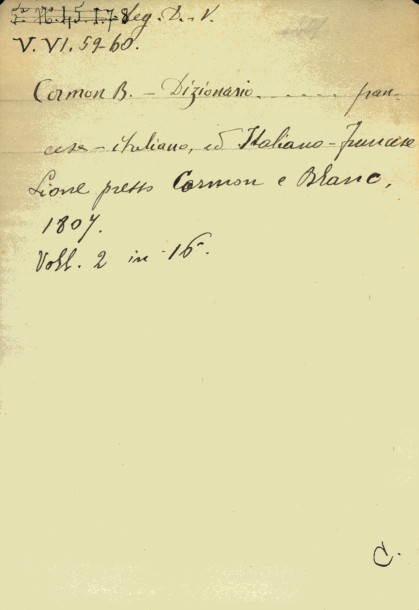 5ª N. 45. I. 7-8 Leg. D. V.
V. VI. 59-60.
Cormon B. – Dizionario ....... fran-
cese - italiano, ed Italiano - francese
Lione presso Cormon e Blanc,
1807.
Voll. 2 in - 16°.
C.